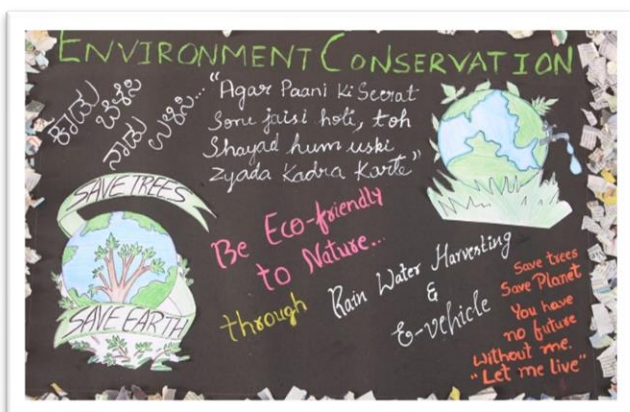 ENVIRONMENT CONSERVATION
ಕಾಡು
ಬೆಳೆಸಿ
ನಾಡು
ಉಳಿಸಿ...
"Agar Paani Ki Seerat
Sone jaisi hoti, toh
Shayad hum uski
Zyada Kadra Karte"
SAVE TREES
SAVE EARTH
Be Eco-friendly
to Nature...
through
Rain Water Harvesting
&
E-vehicle
Save trees
Save Planet
You have
no future
without me.
"Let me live"